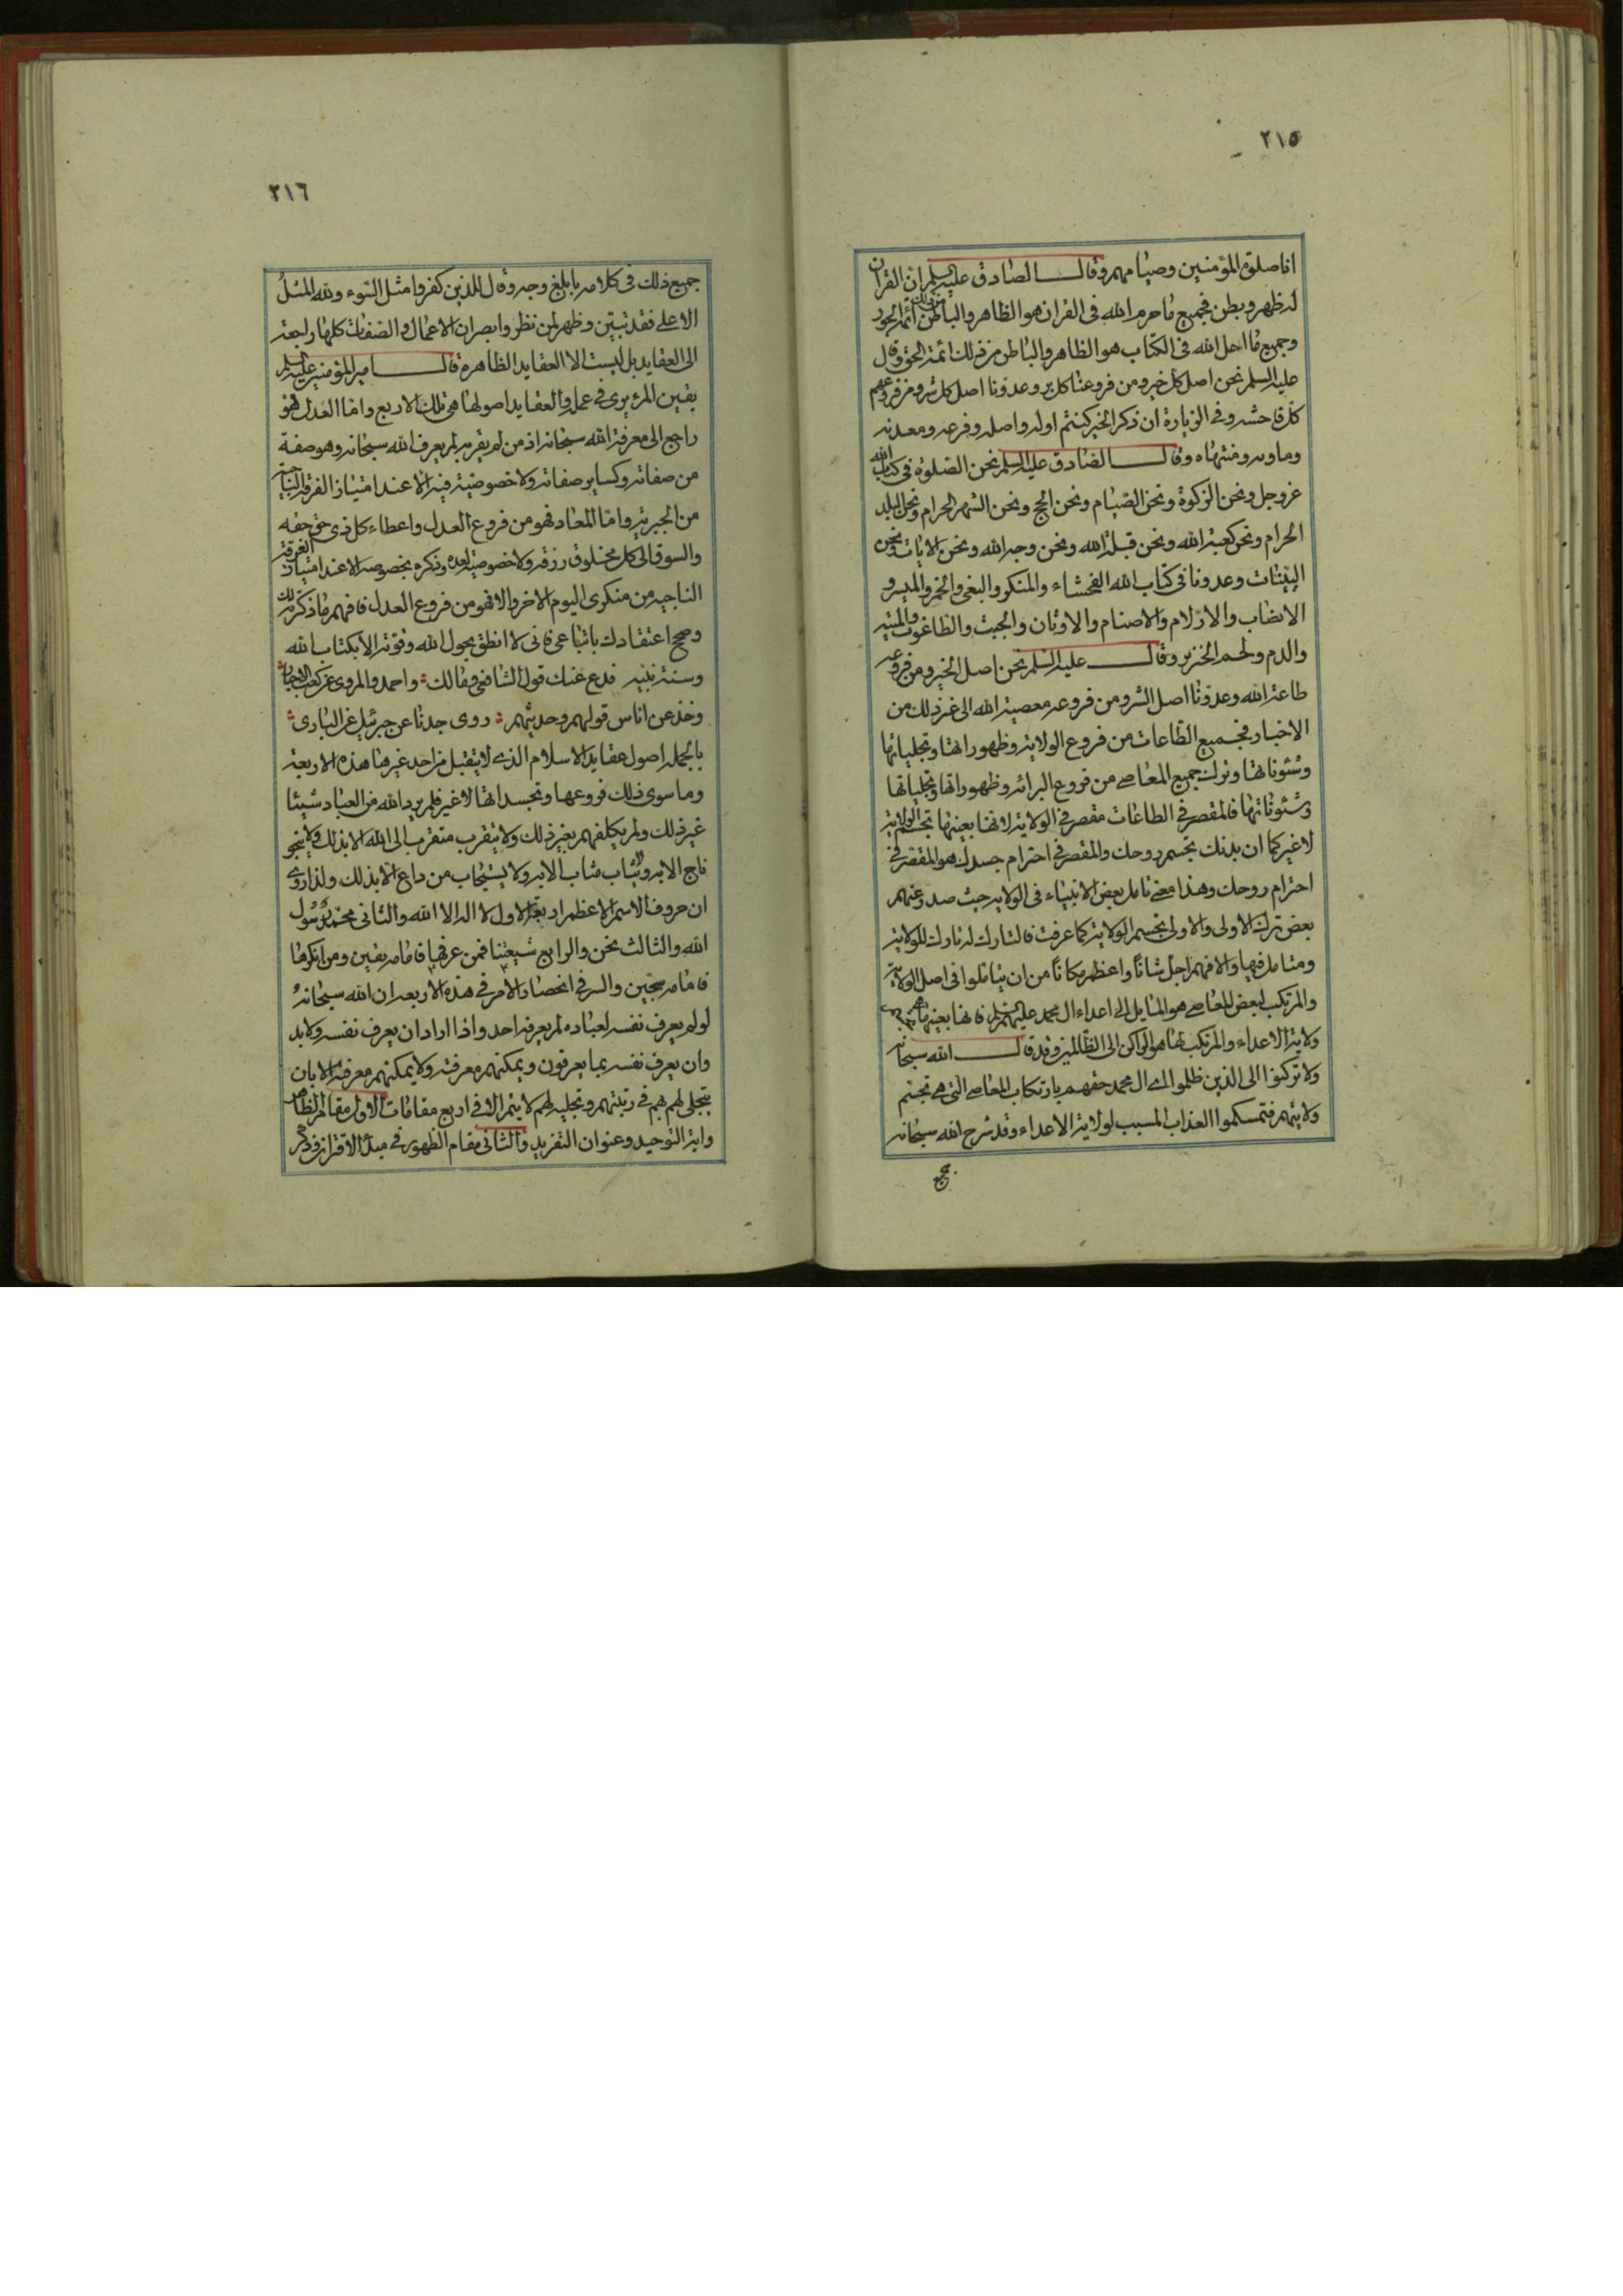 ٢١٥
انا صلوة المؤمنين وصيامهم وقال الصادق عليه السلم ان القران
له ظهر وبطن فجميع ما حرم الله فى القران هو الظاهر والباطن من ذلك ائمة الجور
وجميع ما احل الله فى الكتاب هو الظاهر والباطن من ذلك ائمة الحق وقال
عليه السلم نحن اصل كل خير ومن فروعنا كل بر وعدونا اصل كل شر ومن فروعهم
كل فاحشة وفى الزيارة ان ذكر الخير كنتم اوله واصله وفرعه ومعدنه
وماويه ومنتهاه وقال الصادق عليه السلم نحن الصلوة فى كتاب الله
عز وجل ونحن الزكوة ونحن الصيام ونحن الحج ونحن الشهر الحرام ونحن البلد
الحرام ونحن كعبة الله ونحن قبلة الله ونحن وجه الله ونحن الايات ونحن
البينات وعدونا فى كتاب الله الفحشاء والمنكر والبغى والخمر والميسر و
الانصاب والازلام والاصنام والاوثان والجبت والطاغوت والميتة
والدم ولحم الخنزير وقال عليه السلم نحن اصل الخير ومن فروعه
طاعة الله وعدونا اصل الشر ومن فروعه معصية الله الى غير ذلك من
الاخبار فجميع الطاعات من فروع الولاية وظهوراتها وتجلياتها
وشئوناتها وترك جميع المعاصى من فروع البرائة وظهوراتها وتجلياتها
وشئوناتها فالمقصر فى الطاعات مقصر فى الولاية لانها بعينها تجسم الولاية
لا غير كما ان بدنك تجسم روحك والمقصر فى احترام جسدك هو المقصر فى
احترام روحك وهذا معنى تامل بعض الانبياء فى الولاية حيث صدر عنهم
بعض ترك الاولى والاولى تجسم الولاية كما عرفت فالتارك له تارك للولاية
ومتامل فيها والا فهم اجل شانا واعظم مكانا من ان يتاملوا فى اصل الولاية
والمرتكب لبعض المعاصى هو المايل الى اعداء ال محمد عليهم السلم فانها بعينها تجسم
ولاية الاعداء والمرتكب لها هو الراكن الى الظالمين وقد قال الله سبحانه
ولا تركنوا الى الذين ظلموا اى ال محمد حقهم بارتكاب المعاصى التى هى تجسم
ولايتهم فتمسكموا العذاب المسبب لولاية الاعداء وقد شرح الله سبحانه
٢١٦
جميع ذلك فى كلامه بابلغ وجه وقال للذين كفروا مثل السوء ولله المثل
الاعلى فقد تبين وظهر لمن نظر وابصر ان الاعمال والصفات كلها راجعة
الى العقايد بل ليست الا العقايد الظاهرة قال امير المؤمنين عليه السلم
يقين المرء يرى فى عمله والعقايد اصولها هى تلك الاربع واما العدل فهو
راجع الى معرفة الله سبحانه اذ من لم يقر به لم يعرف الله سبحانه وهو صفة
من صفاته وكساير صفاته ولا خصوصية فيه الا عند امتياز الفرقة الناجية
من الجبرية واما المعاد فهو من فروع العدل واعطاء كل ذى حق حقه
والسوق الى كل مخلوق رزقه ولا خصوصية لعده وذكره بخصوصه الا عند امتياز الفرقة
الناجية من منكرى اليوم الاخر والا فهو من فروع العدل فافهم ما ذكرته لك
وصحح اعتقادك باتباعى فانى لا انطق بحول الله وقوته الا بكتاب الله
وسنة نبيه فدع عنك قول الشافعى ومالك واحمد والمروى عن كعب الاحبار
وخذ عن اناس قولهم وحديثهم روى جدنا عن جبرئيل عن البارى
بالجملة اصول عقايد الاسلام الذى لا يتقبل من احد غيرها هذه الاربعة
وما سوى ذلك فروعها وتجسداتها لا غير فلم يرد الله من العباد شيئا
غير ذلك ولم يكلفهم بغير ذلك ولا يتقرب متقرب الى الله الا بذلك ولا ينجو
ناج الا به ولا يثاب مثاب الا به ولا يستجاب من داع الا بذلك ولذا روى
ان حروف الاسم الاعظم اربعة الاول لا اله الا الله والثانى محمد رسول
الله والثالث نحن والرابع شيعتنا فمن عرفها فامامه يقين ومن انكرها
فامامه سجين والسر فى انحصار الامر فى هذه الاربعة ان الله سبحانه
لو لم يعرف نفسه لعباده لم يعرفه احد واذا اراد ان يعرف نفسه ولا بد
وان يعرف نفسه بما يعرفون ويمكنهم معرفته ولا يمكنهم معرفته الا بان
يتجلى لهم بهم فى رتبتهم وتجليه لهم لا يتم الا فى اربع مقامات الاول مقام الظاهر
واية التوحيد وعنوان التفريد والثانى مقام الظهور فى مبدء الاقتران وذكر